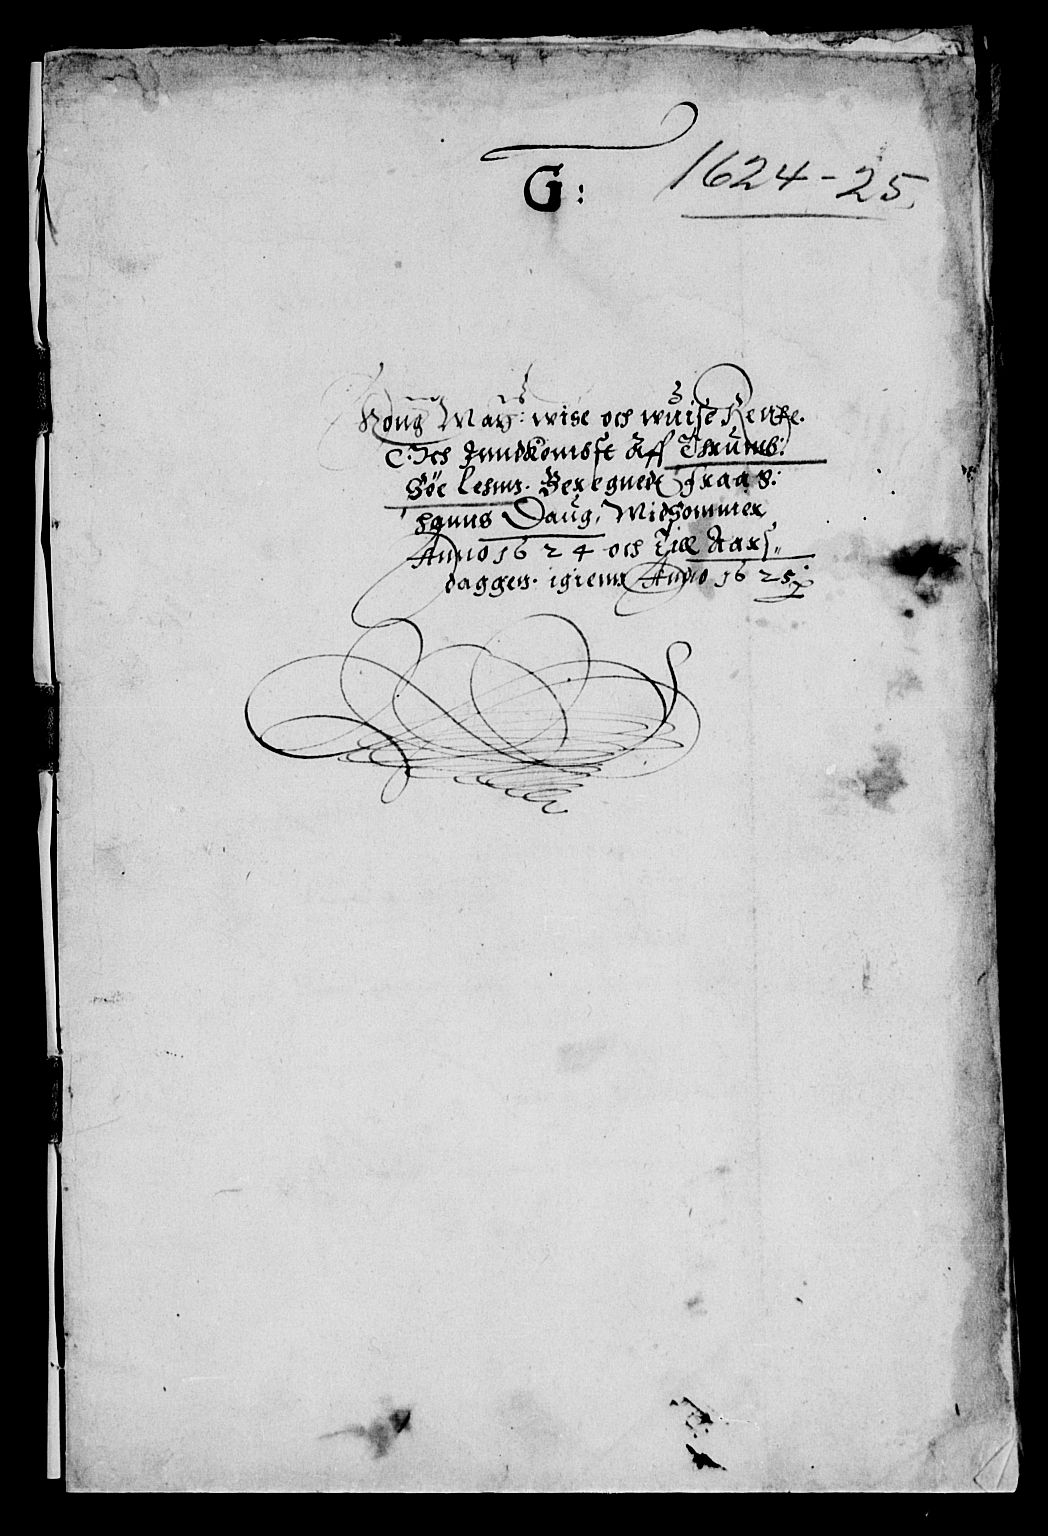 G:
1624-25.
Kong: May: wise och wuise Rennthe.
Och Inndkombst Aff Thrumb:
Söe lehnn. Beregnedt fraa S:
hanns Daug, Midsommer
Anno 1624 och Till Aars„
daggen igienn Anno 1625